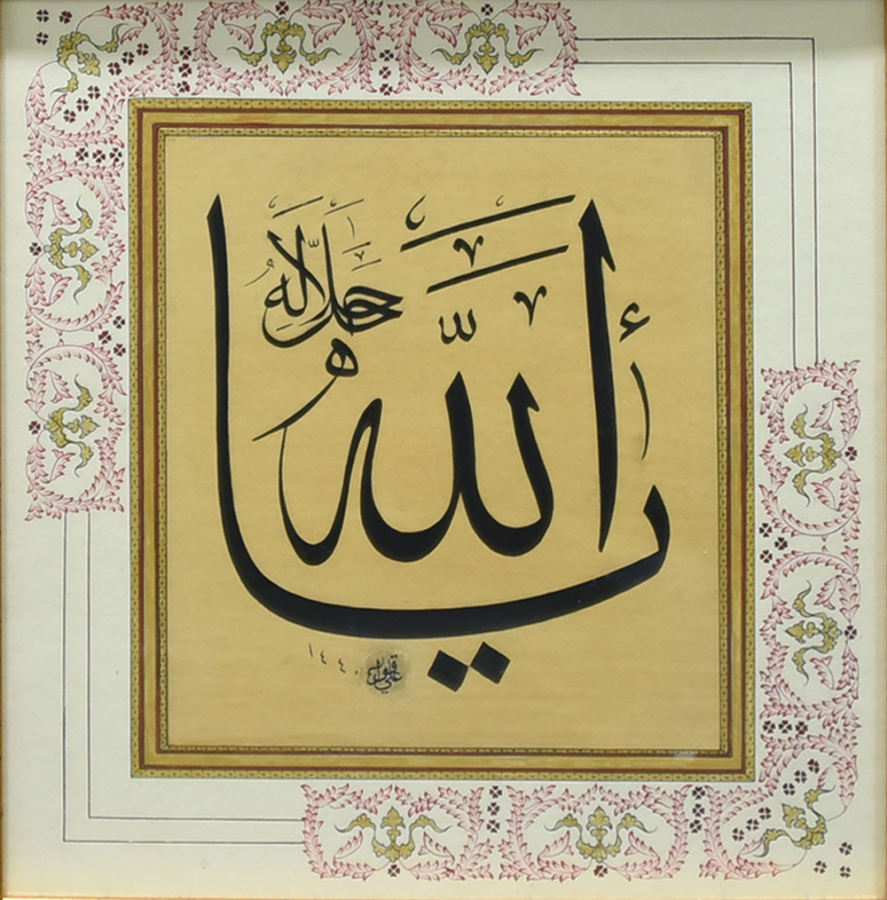 يا أللّٰه
جلّ جلاله
١٤٤٠